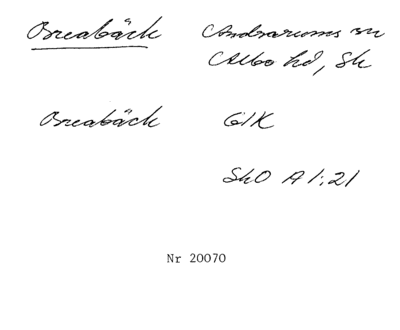 Breabäck Andrarums sn
Albo hd, Sk
Breabäck GIK
SkO A 1:21
Nr 20070